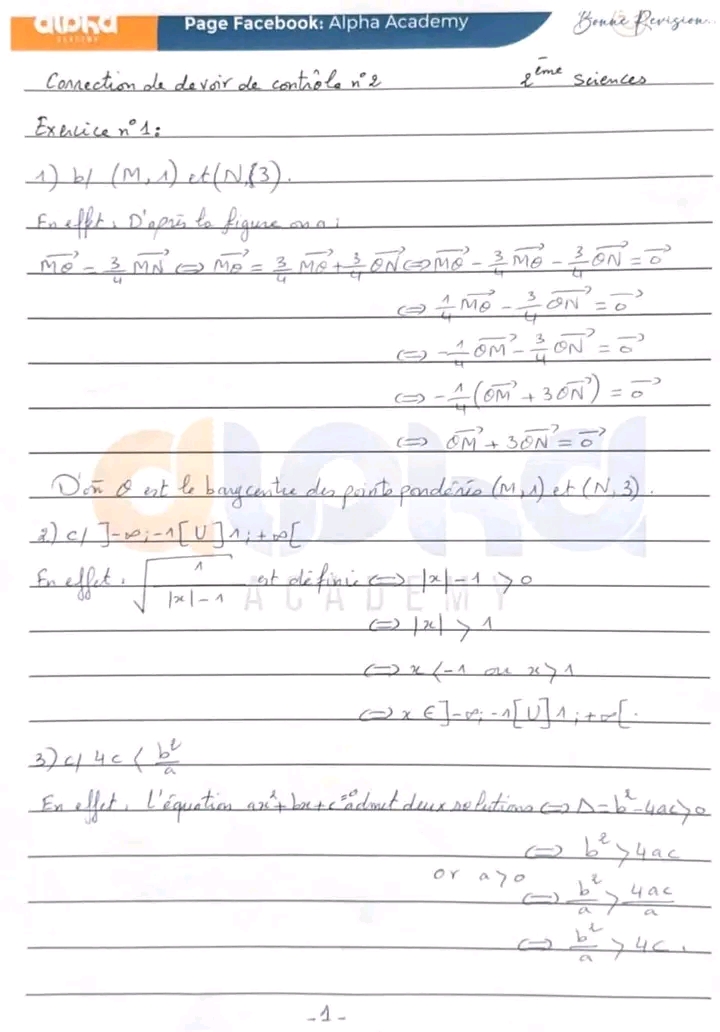 alpha
ACADEMY
Page Facebook: Alpha Academy
Bonne Revision...
Correction de devoir de contrôle n°2 2ème Sciences
Exercice n°1:
1) b/ (M, 1) et (N, 3).
En effet: D'après la figure on a:
MO⃗ - 3/4 MN⃗ <=> MO⃗ = 3/4 MO⃗ + 3/4 ON⃗ <=> MO⃗ - 3/4 MO⃗ - 3/4 ON⃗ = 0⃗
<=> 1/4 MO⃗ - 3/4 ON⃗ = 0⃗
<=> -1/4 OM⃗ - 3/4 ON⃗ = 0⃗
<=> -1/4 (OM⃗ + 3ON⃗) = 0⃗
<=> OM⃗ + 3ON⃗ = 0⃗
D'où O est le barycentre des points pondérés (M, 1) et (N, 3).
2) c/ ]-∞; -1[ U ]1; +∞[
En effet: √(1/(|x|-1)) est définie <=> |x|-1 > 0
<=> |x| > 1
<=> x < -1 ou x > 1
<=> x ∈ ]-∞; -1[ U ]1; +∞[.
3) c/ 4c < b²/a
En effet: L'équation ax²+bx+c=0 admet deux solutions <=> Δ = b²-4ac > 0
<=> b² > 4ac
or a > 0 <=> b²/a > 4ac/a
<=> b²/a > 4c.
alpha
ACADEMY
-1-